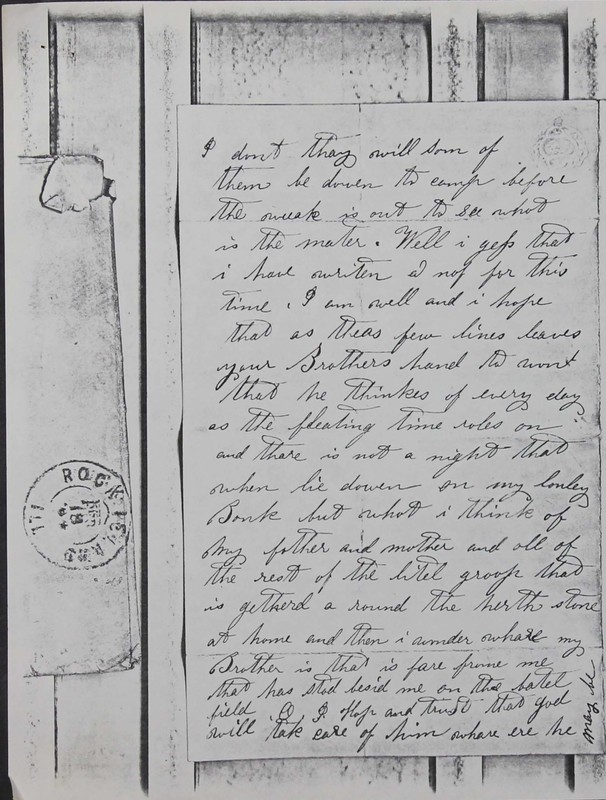 I dont thay will som of
them be down to camp before
the weak is out to see what
is the mater. Well i gess that
i have writen a nof for this
time. I am well and i hope
that as theas few lines leaves
your Brothers hand to wont
that he thinkes of every day
as the fleating time roles on
and thare is not a night that
when lie dowen on my lonley
Bonk but what i think of
my father and mother and all of
the rest of the litel groop that
is getherd a round the herth stone
at home and then i wunder whare my
Brother is that is fare frome me
that has stod besid me on the batel
field O I Hop and trust that god
will tak care of him whare ere he
may be
ROCK ISLAND ILL
FEB
18